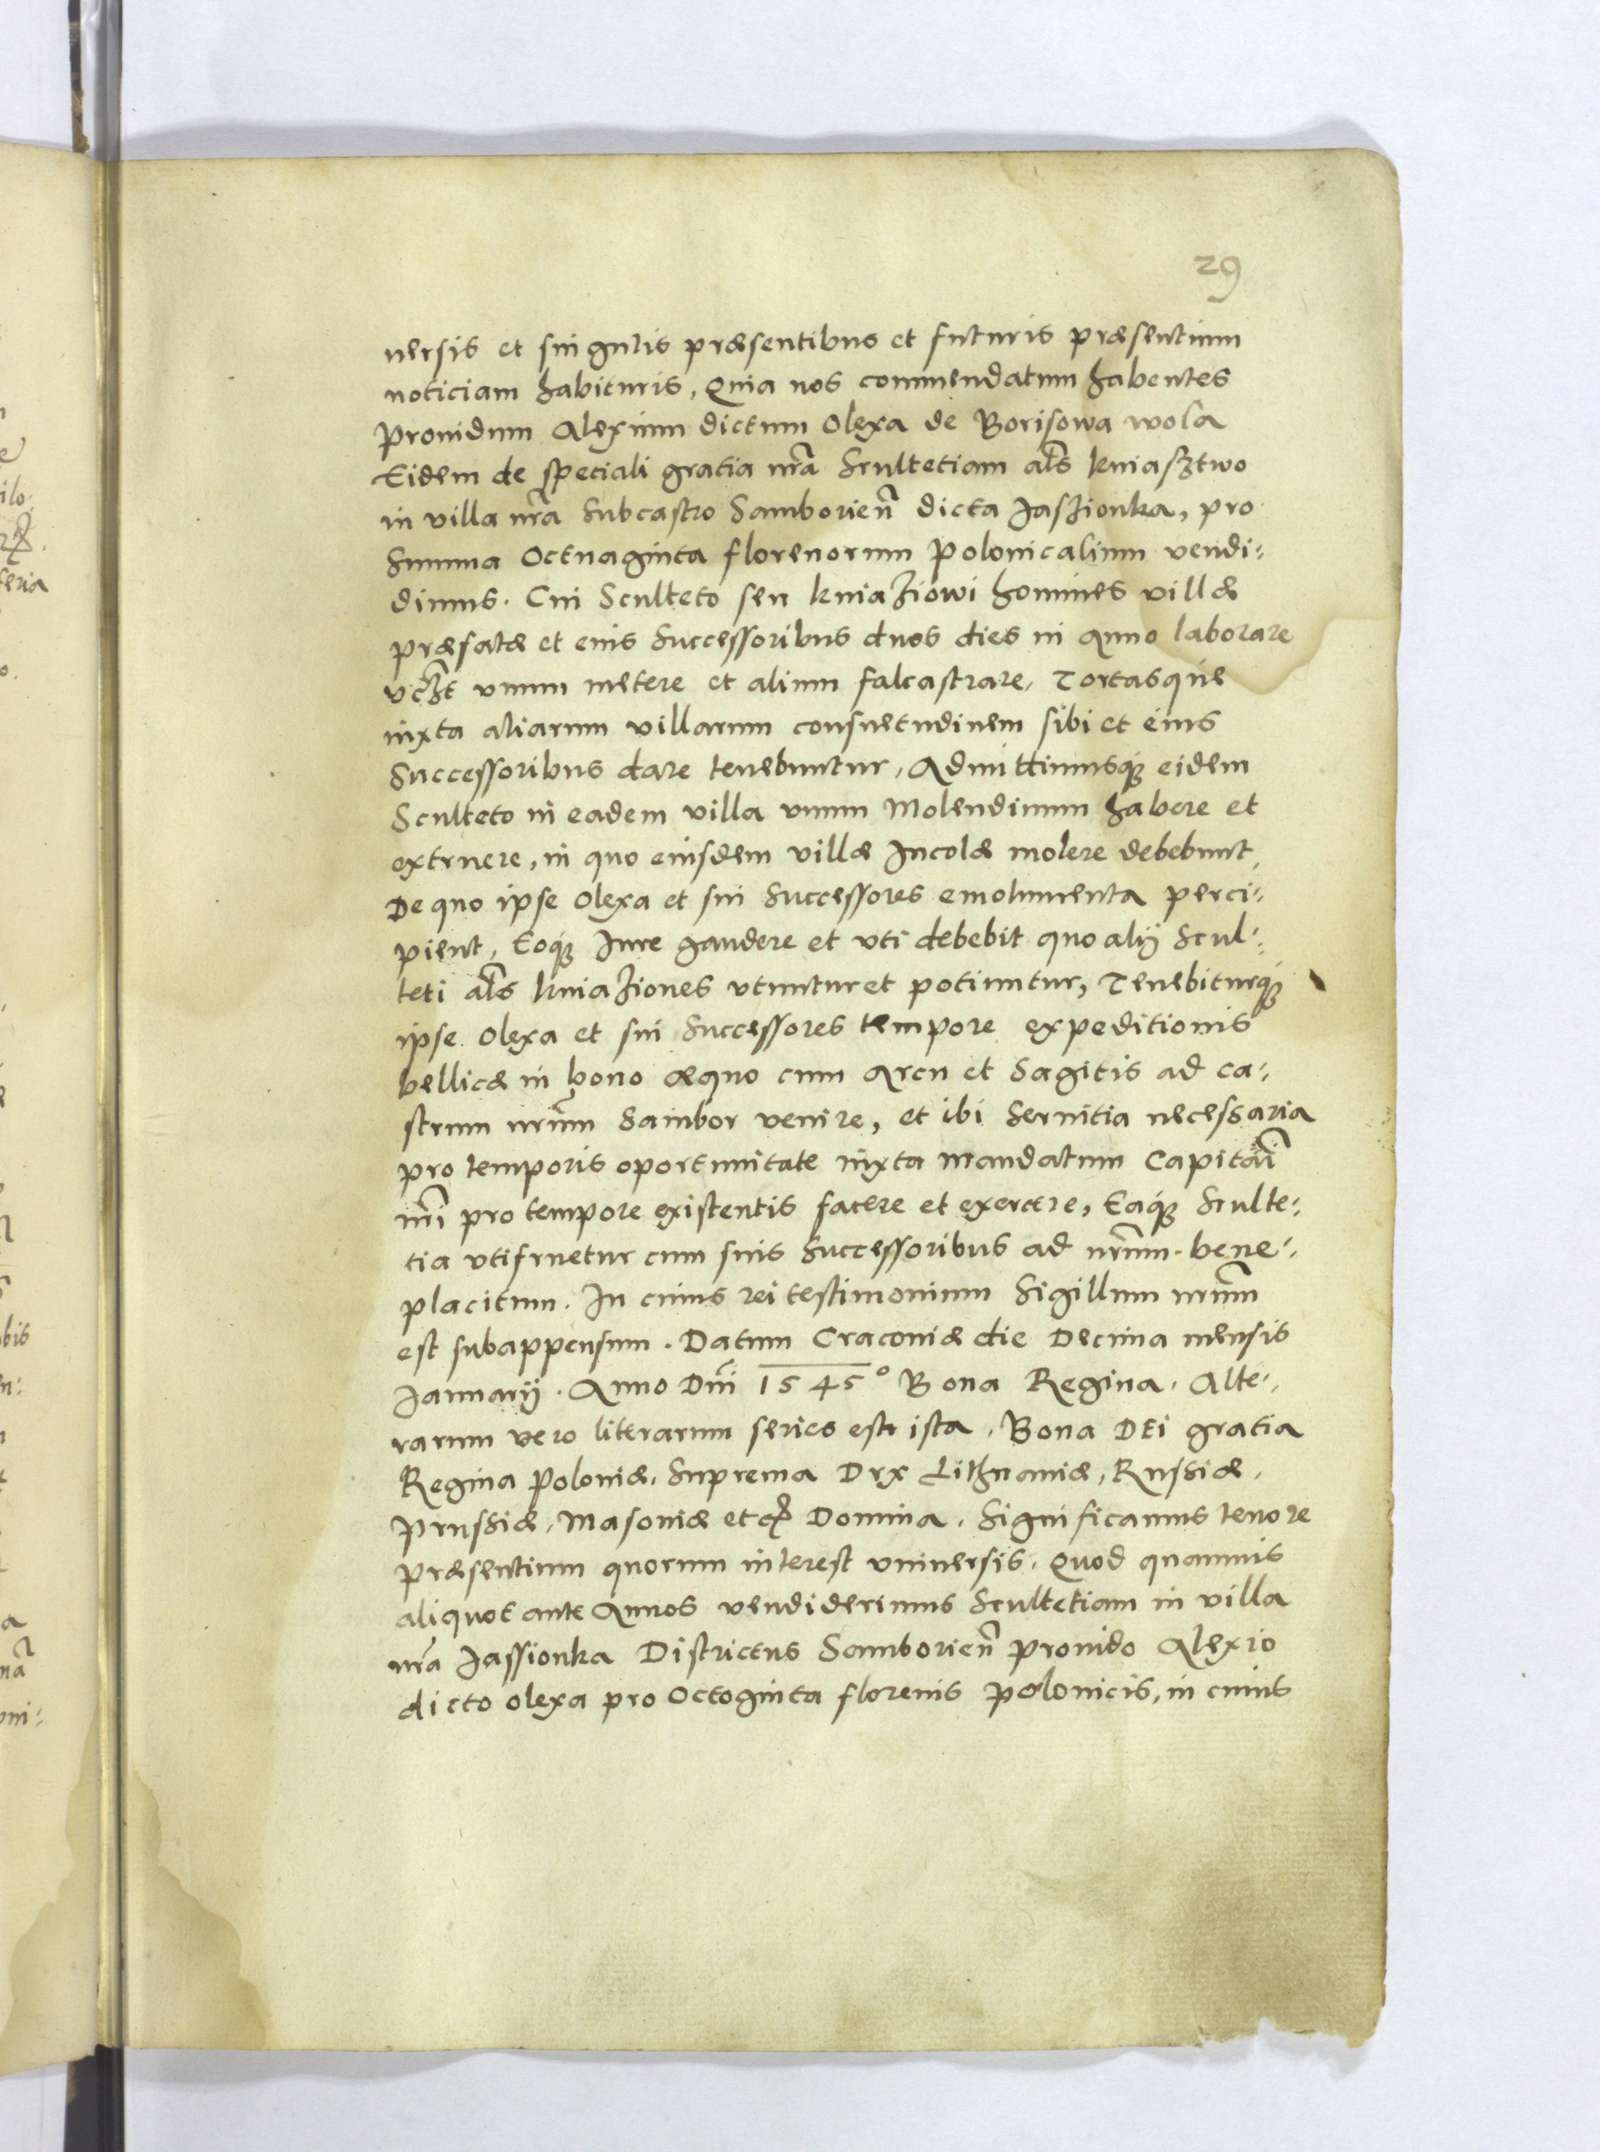 29
uersis et singulis præsentibus et futuris præsentium
noticiam habituris, Quia nos commendatum habentes
Prouidum Alexium dictum Olexa de Borisowa wola
Eidem de speciali gratia nr̃a Scultetiam al̃s kniasztwo
in villa nr̃a Subcastro Samborien̄ dicta Jaszionka, pro
Summa Octuaginta florenorum Polonicalium vendi:
dimus. Cui Sculteto seu kniaziowi homines villæ
præfatæ et eius Successoribus duos dies in Anno laborare
vcz̃t vnum metere et alium falcastrare, Tortasque
iuxta aliarum villarum consuetudinem sibi et eius
Successoribus dare tenebuntur, Admittimusq; eidem
Sculteto in eadem villa vnum Molendinum habere et
extruere, in quo eiusdem villæ Incolæ molere debebunt,
De quo ipse Olexa et sui Successores emolumenta perci:
pient, Eoq; Iure gaudere et vti debebit quo alij Scul:
teti al̃s kniaziones vtuntur et potiuntur, Tenebiturq;
ipse Olexa et sui Successores tempore expeditionis
bellicæ in bono æquo cum Arcu et Sagitis ad ca:
strum nr̃um Sambor venire, et ibi Seruitia necessaria
pro temporis oportunitate iuxta Mandatum Capitāī
nr̃i pro tempore existentis facere et exercere, Eaq; Sculte:
tia vtifruetur cum suis Successoribus ad nr̃um bene:
placitum. In cuius rei testimonium Sigillum nr̃um
est subappensum. Datum Cracouiæ die Decima mensis
Januarij. Anno Dñi 1545° Bona Regina. Alte:
rarum vero literarum series est ista. Bona DEi gratia
Regina Poloniæ, Suprema Dux Lithuaniæ, Russiæ,
Prussiæ, Masouiæ etc̃ Domina. Significamus tenore
præsentium quorum interest vniuersis. Quod quamuis
aliquot ante Annos vendiderimus Scultetiam in villa
nr̃a Jassionka Districtus Samborien̄ prouido Alexio
dicto Olexa pro Octoginta florenis Polonicis, in cuius